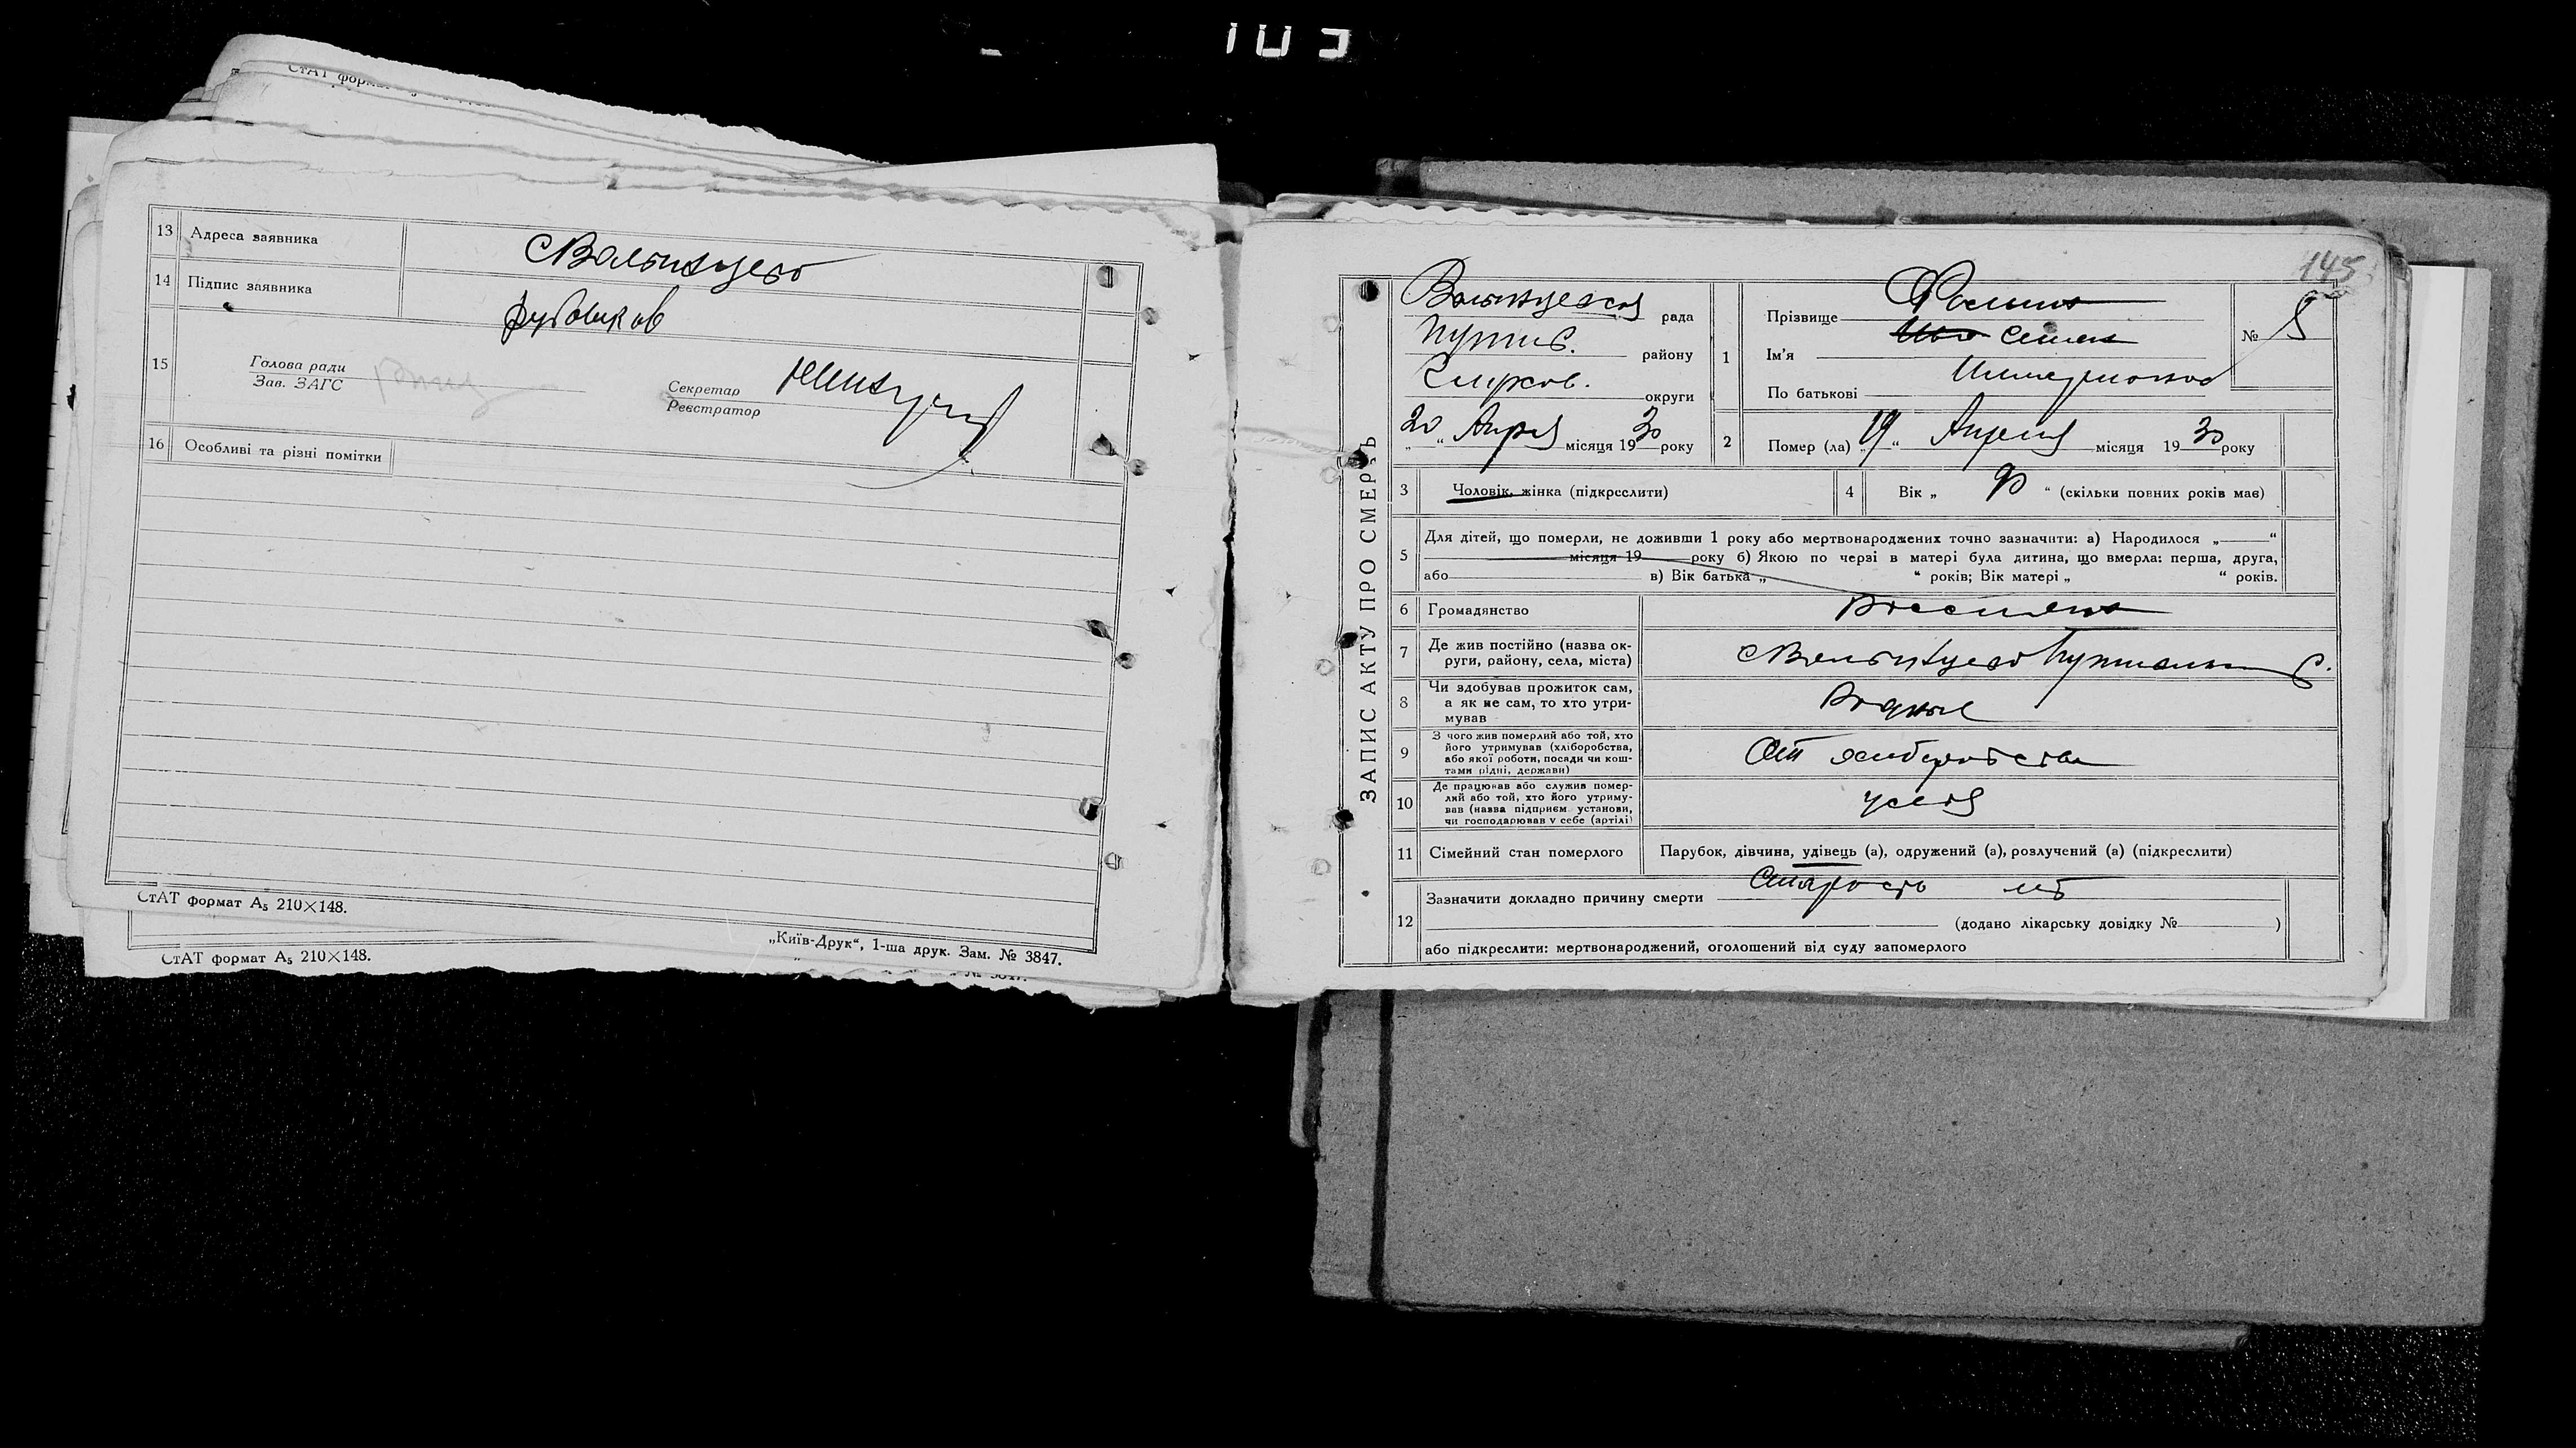 СтАТ
13 Адреса заявника с Волынцево
14 Підпис заявника
15 Голова ради
Зав. ЗАГС
Секретар
Реєстратор
16 Особливі та різні помітки
СтАТ формат А₅ 210×148.
„Київ-Друк“, 1-ша друк. Зам. № 3847.
СтАТ формат А₅ 210×148.
145
ЗАПИС АКТУ ПРО СМЕРТЬ
Волынцевская рада
Путив. району
округи
20 „ “ Апреля місяця 1930 року
1 Прізвище Фомин
Ім’я Семен
По батькові
№
2 Помер (ла) „19“ Апреля місяця 1930 року
3 Чоловік, жінка (підкреслити)
4 Вік „ 90 “ (скільки повних років має)
5 Для дітей, що померли, не доживши 1 року або мертвонароджених точно зазначити: а) Народилося „ “
місяця 19 року б) Якою по черзі в матері була дитина, що вмерла: перша, друга,
або в) Вік батька „ “ років; Вік матері „ “ років.
6 Громадянство
7 Де жив постійно (назва ок-
руги, району, села, міста) с Волынцево Путивльск р.
8 Чи здобував прожиток сам,
а як не сам, то хто утри-
мував Родные
9 З чого жив померлий або той, хто
його утримував (хліборобства,
або якої роботи, посади чи кош-
тами рідні, держави) От хлеборобства
10 Де працював або служив помер-
лий або той, хто його утриму-
вав (назва підприєм. установи,
чи господарював у себе (артілі) у себя
11 Сімейний стан померлого Парубок, дівчина, удівець (а), одружений (а), розлучений (а) (підкреслити)
12 Зазначити докладно причину смерти Старость лет
(додано лікарську довідку № )
або підкреслити: мертвонароджений, оголошений від суду запомерлого